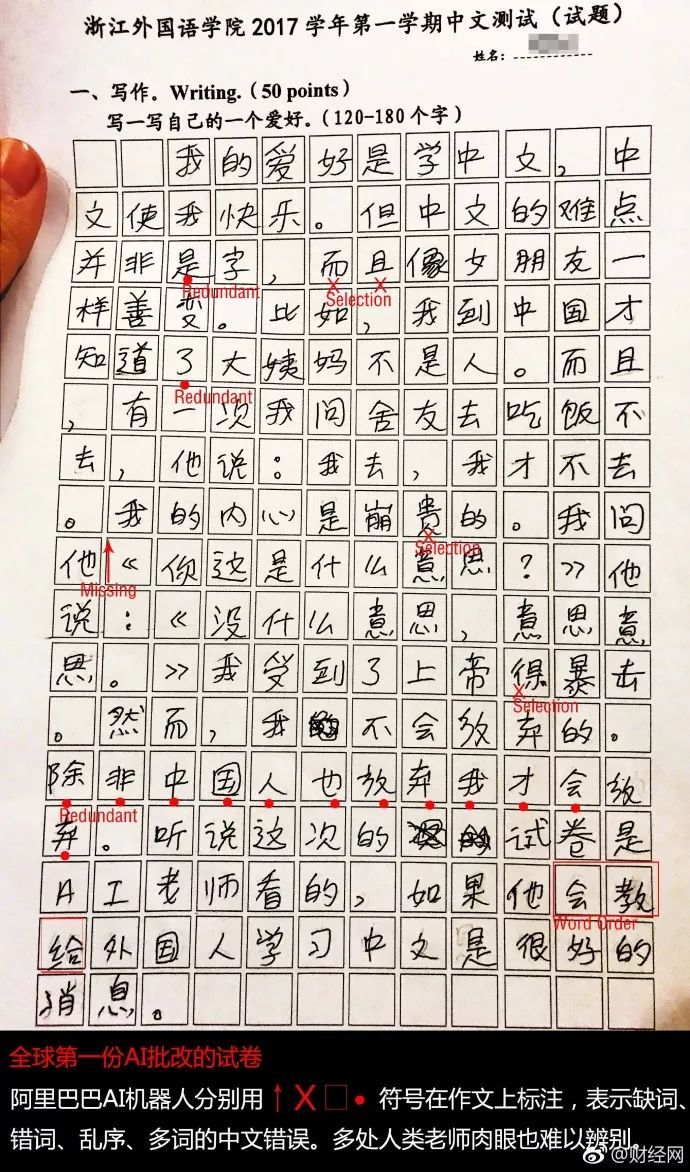 浙江外国语学院 2017 学年第一学期中文测试（试题）
姓名：
一、写作。Writing.（50 points）
写一写自己的一个爱好。（120-180 个字）
我的爱好是学中文，中
文使我快乐。但中文的难点
并非是字，而且像女朋友一
Redundant
Selection
样善变。比如，我到中国才
知道了大姨妈不是人。而且
Redundant
，有一次我问舍友去吃饭不
去，他说：我去，我才不去
。我的内心是崩贵的。我问
Selection
他《你这是什么意思？》他
Missing
说：《没什么意思，意思意
思。》我受到了上帝得暴击
Selection
。然而，我不会放弃的。
除非中国人也放弃我才会放
Redundant
弃。听说这次的试卷是
AI老师看的，如果他会教
Word Order
给外国人学习中文是很好的
消息。
全球第一份AI批改的试卷
阿里巴巴AI机器人分别用 ↑ X □ ● 符号在作文上标注，表示缺词、
错词、乱序、多词的中文错误。多处人类老师肉眼也难以辨别。
@财经网